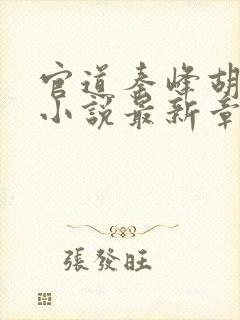 官道秦峰胡
小說最新章
張發旺